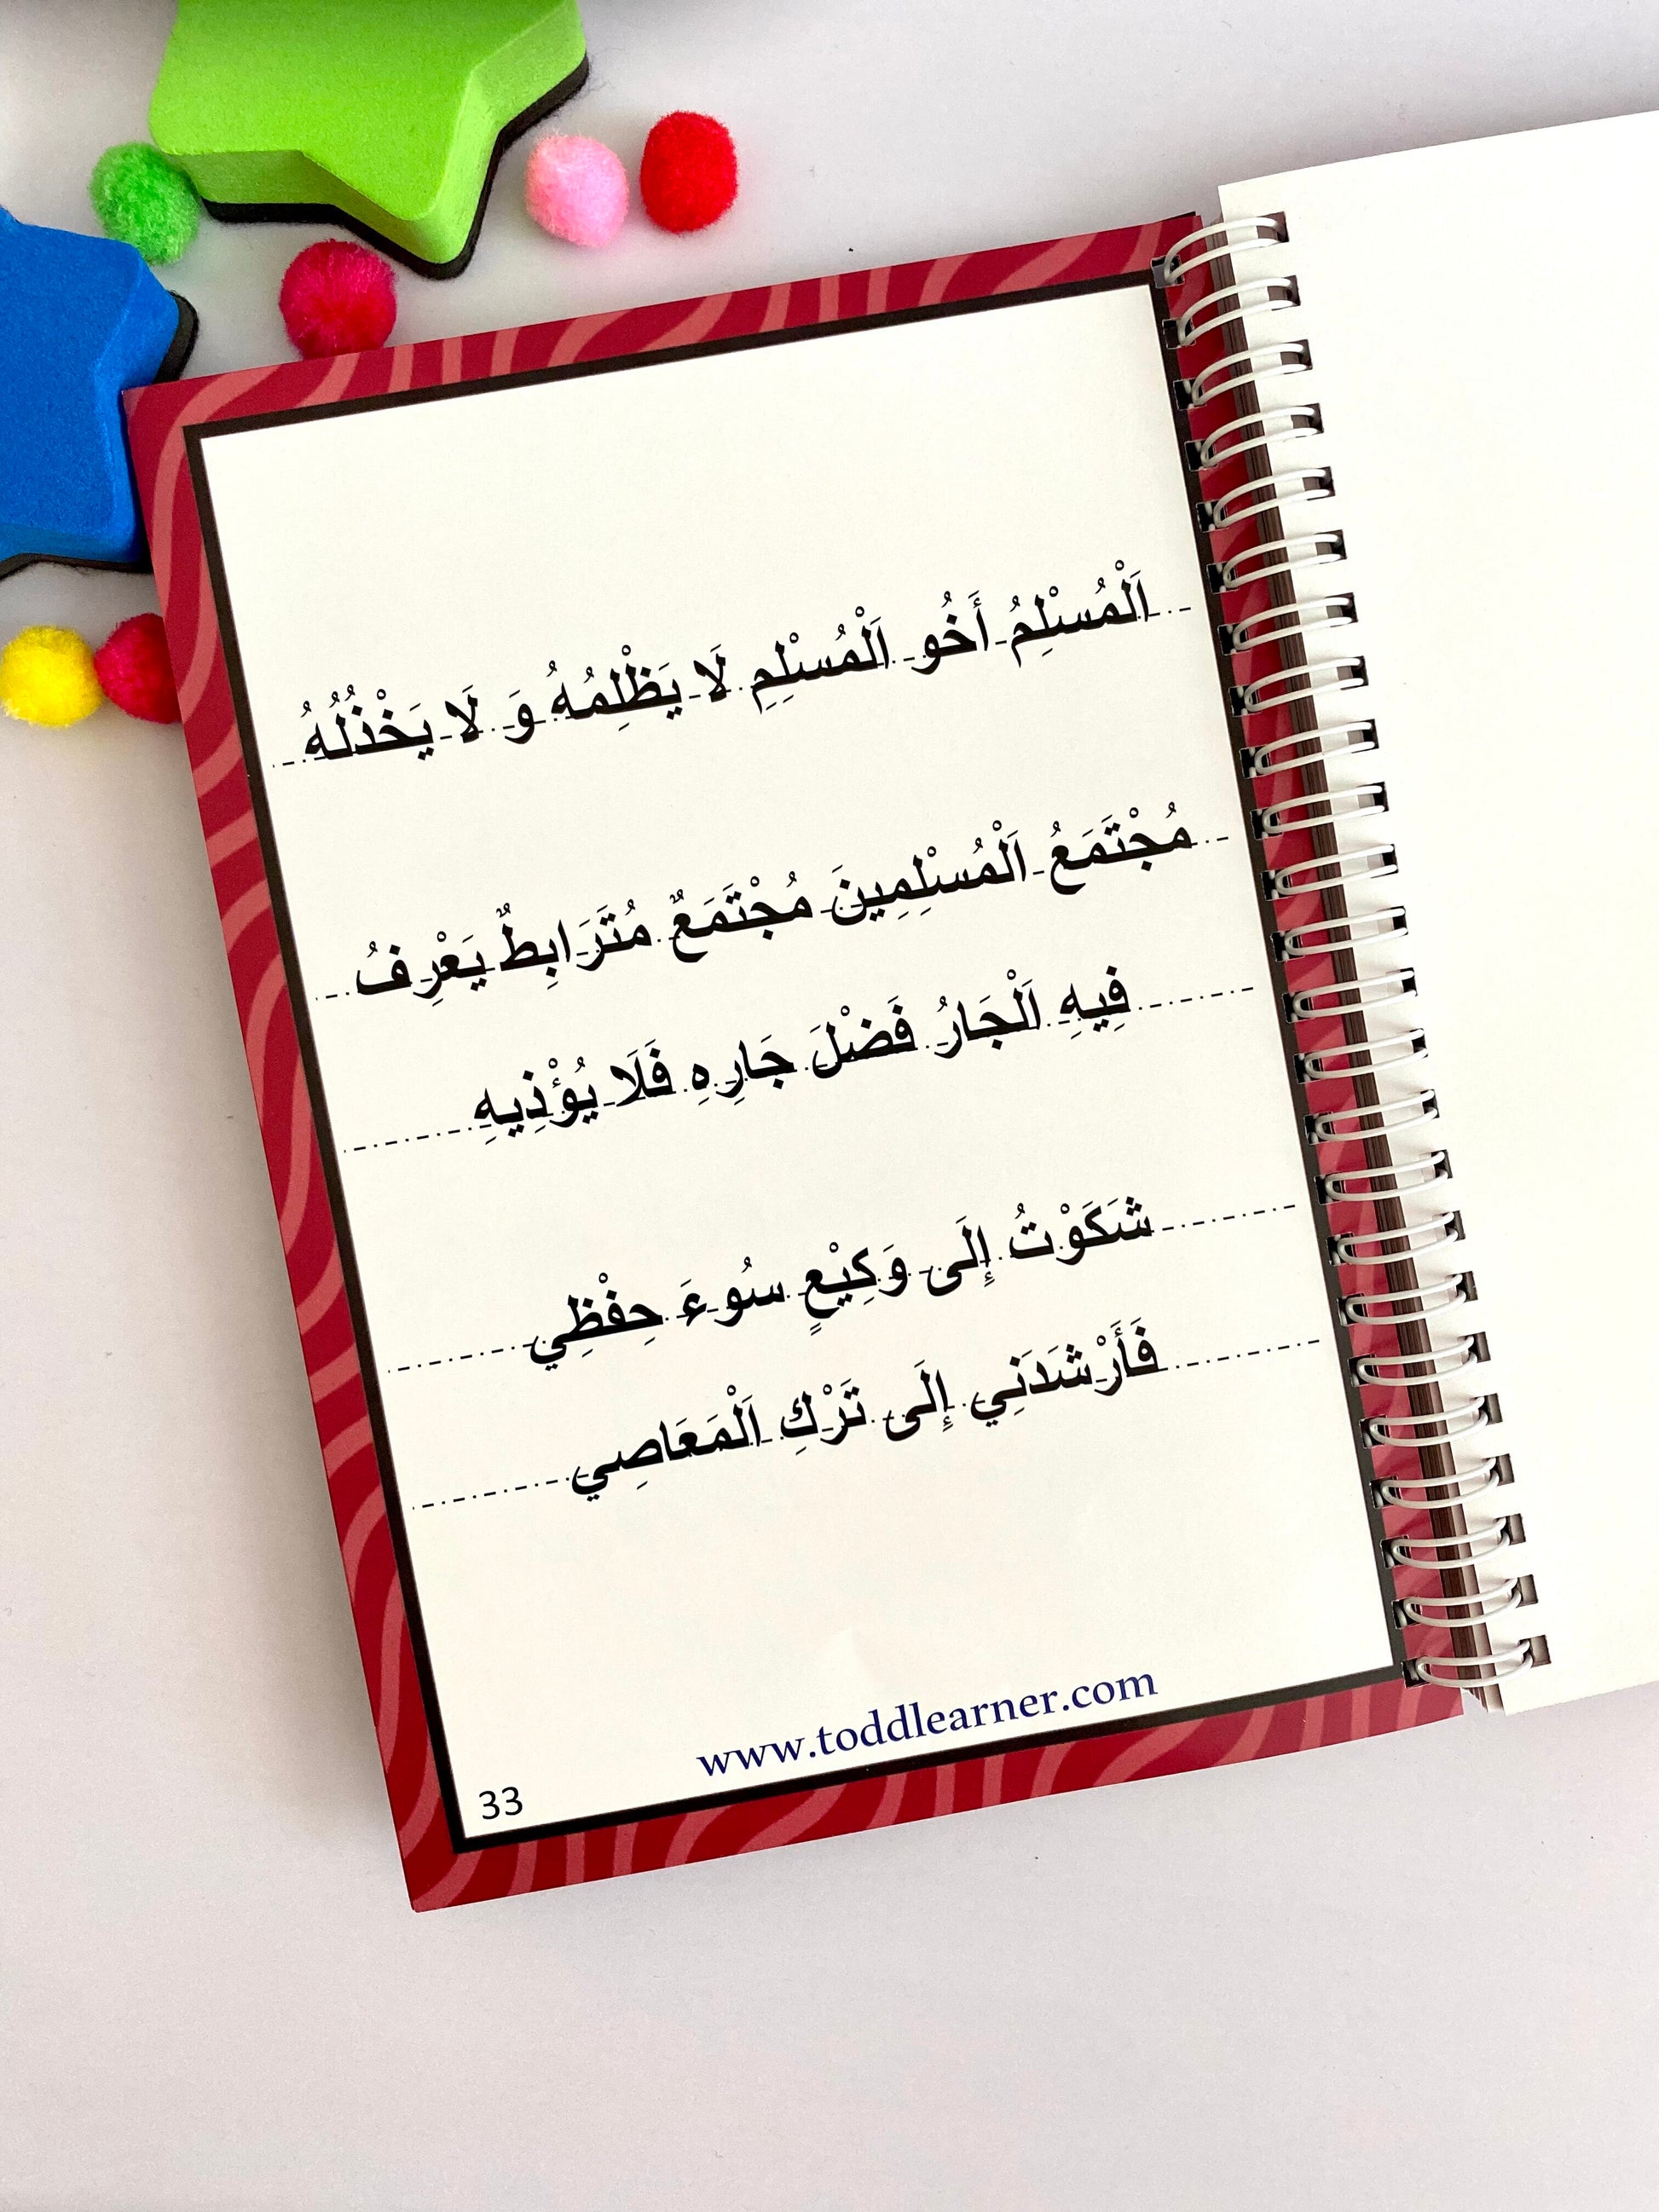 اَلْمُسْلِمُ أَخُو اَلْمُسْلِمِ لَا يَظْلِمُهُ وَ لَا يَخْذُلُهُ
مُجْتَمَعُ اَلْمُسْلِمِينَ مُجْتَمَعٌ مُتَرَابِطٌ يَعْرِفُ
فِيهِ اَلْجَارُ فَضْلَ جَارِهِ فَلَا يُؤْذِيهِ
شَكَوْتُ إِلَى وَكِيْعٍ سُوءَ حِفْظِي
فَأَرْشَدَنِي إِلَى تَرْكِ اَلْمَعَاصِي
www.toddlearner.com
33